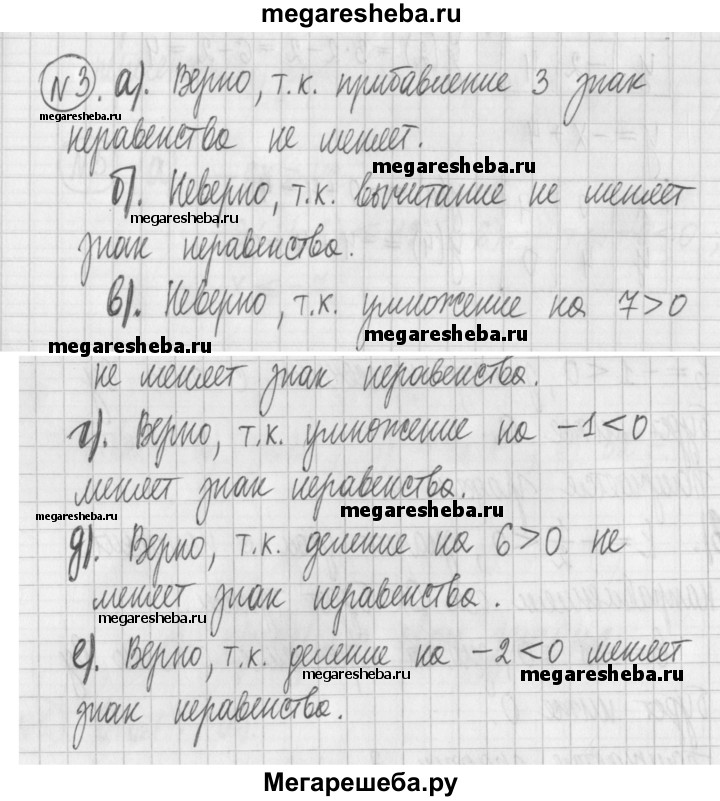 megaresheba.ru
№3. а). Верно, т.к. прибавление 3 знак
megaresheba.ru
неравенства не меняет.
megaresheba.ru
б). Неверно, т.к. вычитание не меняет
megaresheba.ru
знак неравенства.
в). Неверно, т.к. умножение на 7>0
megaresheba.ru
megaresheba.ru
не меняет знак неравенства.
г). Верно, т.к. умножение на -1<0
меняет знак неравенства.
megaresheba.ru
megaresheba.ru
д). Верно, т.к. деление на 6>0 не
меняет знак неравенства.
megaresheba.ru
е). Верно, т.к. деление на -2<0 меняет
megaresheba.ru
megaresheba.ru
знак неравенства.
Мегарешеба.ру